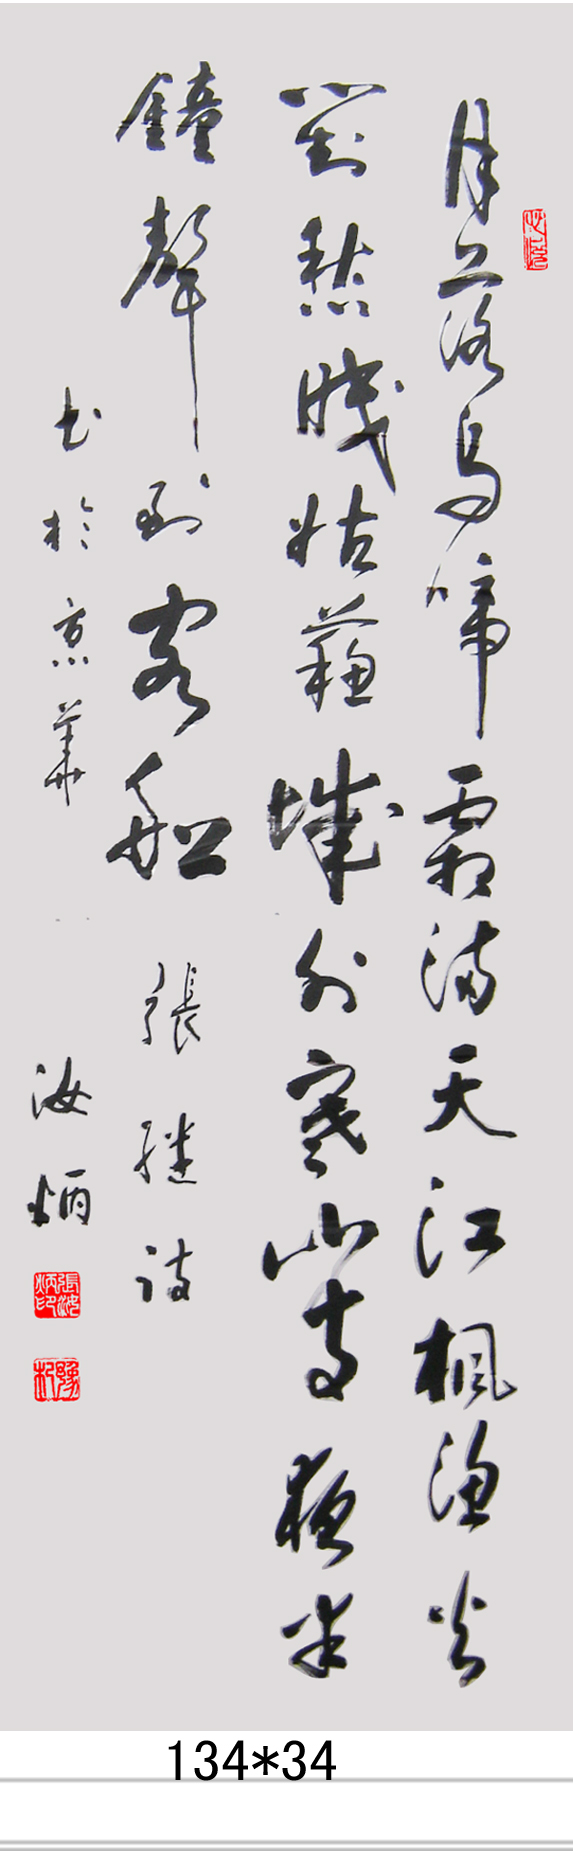 月落烏啼霜滿天江楓漁火
對愁眠姑蘇城外寒山寺夜半
鐘聲到客船 張繼詩
书於京華 汝炳
張汝炳印
134*34